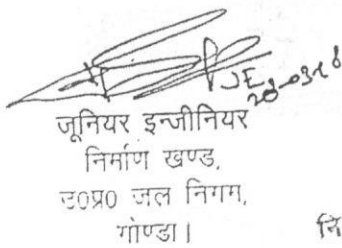 JE
जूनियर इन्जीनियर
निर्माण खण्ड,
उ०प्र० जल निगम,
गोण्डा। नि